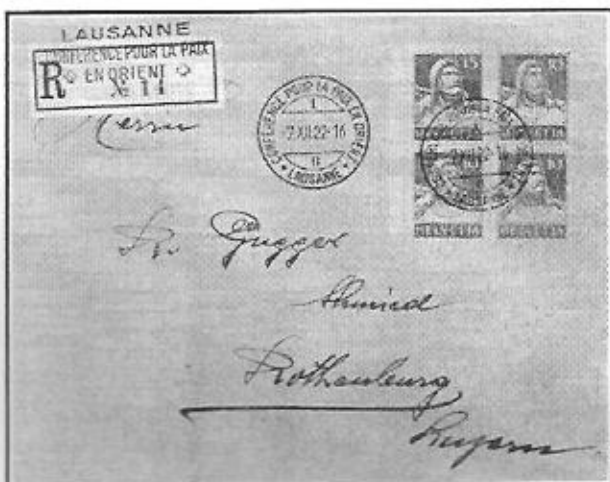 LAUSANNE
CONFÉRENCE POUR LA PAIX
R EN ORIENT
№ 11
CONFÉRENCE POUR LA PAIX EN ORIENT
1
2.XII.22-16
LAUSANNE
15 15
15 15
HELVETIA HELVETIA
Herrn
Gugger
Schmied
Rothenburg
Luzern